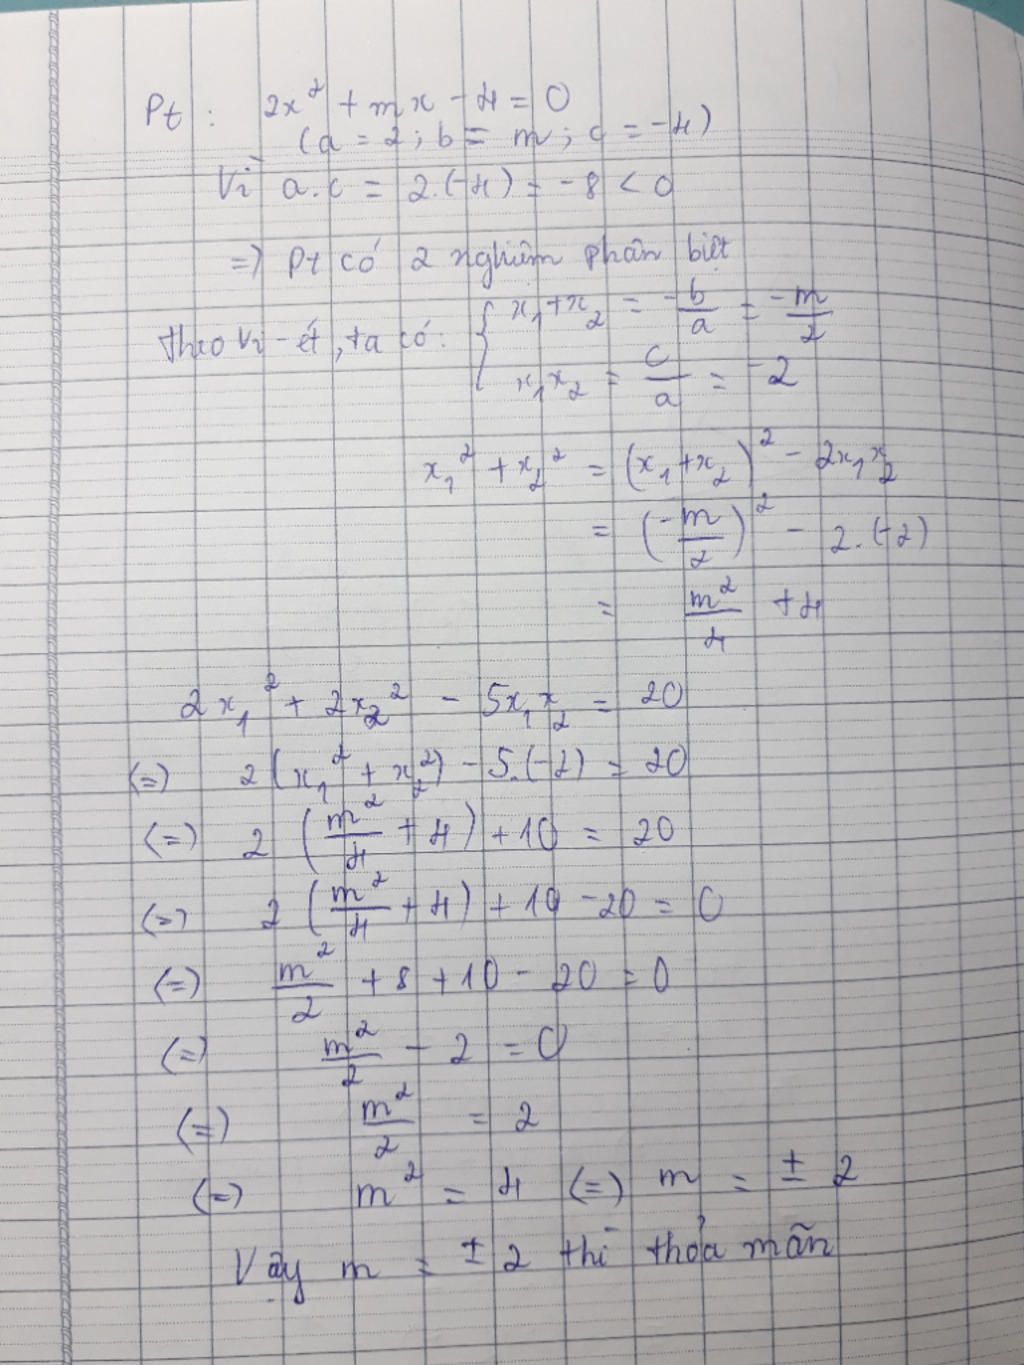 Pt : 2x² + mx - 4 = 0
(a = 2 ; b = m ; c = -4)
Vì a.c = 2.(-4) = -8 < 0
=> Pt có 2 nghiệm phân biệt
Theo Vi-ét, ta có: { x₁+x₂ = -b/a = -m/2
x₁x₂ = c/a = -2
x₁² + x₂² = (x₁+x₂)² - 2x₁x₂
= (-m/2)² - 2.(-2)
= m²/4 + 4
2x₁² + 2x₂² - 5x₁x₂ = 20
(=) 2(x₁² + x₂²) - 5.(-2) = 20
(=) 2 (m²/4 + 4) + 10 = 20
(=) 2 (m²/4 + 4) + 10 - 20 = 0
(=) m²/2 + 8 + 10 - 20 = 0
(=) m²/2 - 2 = 0
(=) m²/2 = 2
(=) m² = 4 (=) m = ± 2
Vậy m = ± 2 thì thỏa mãn